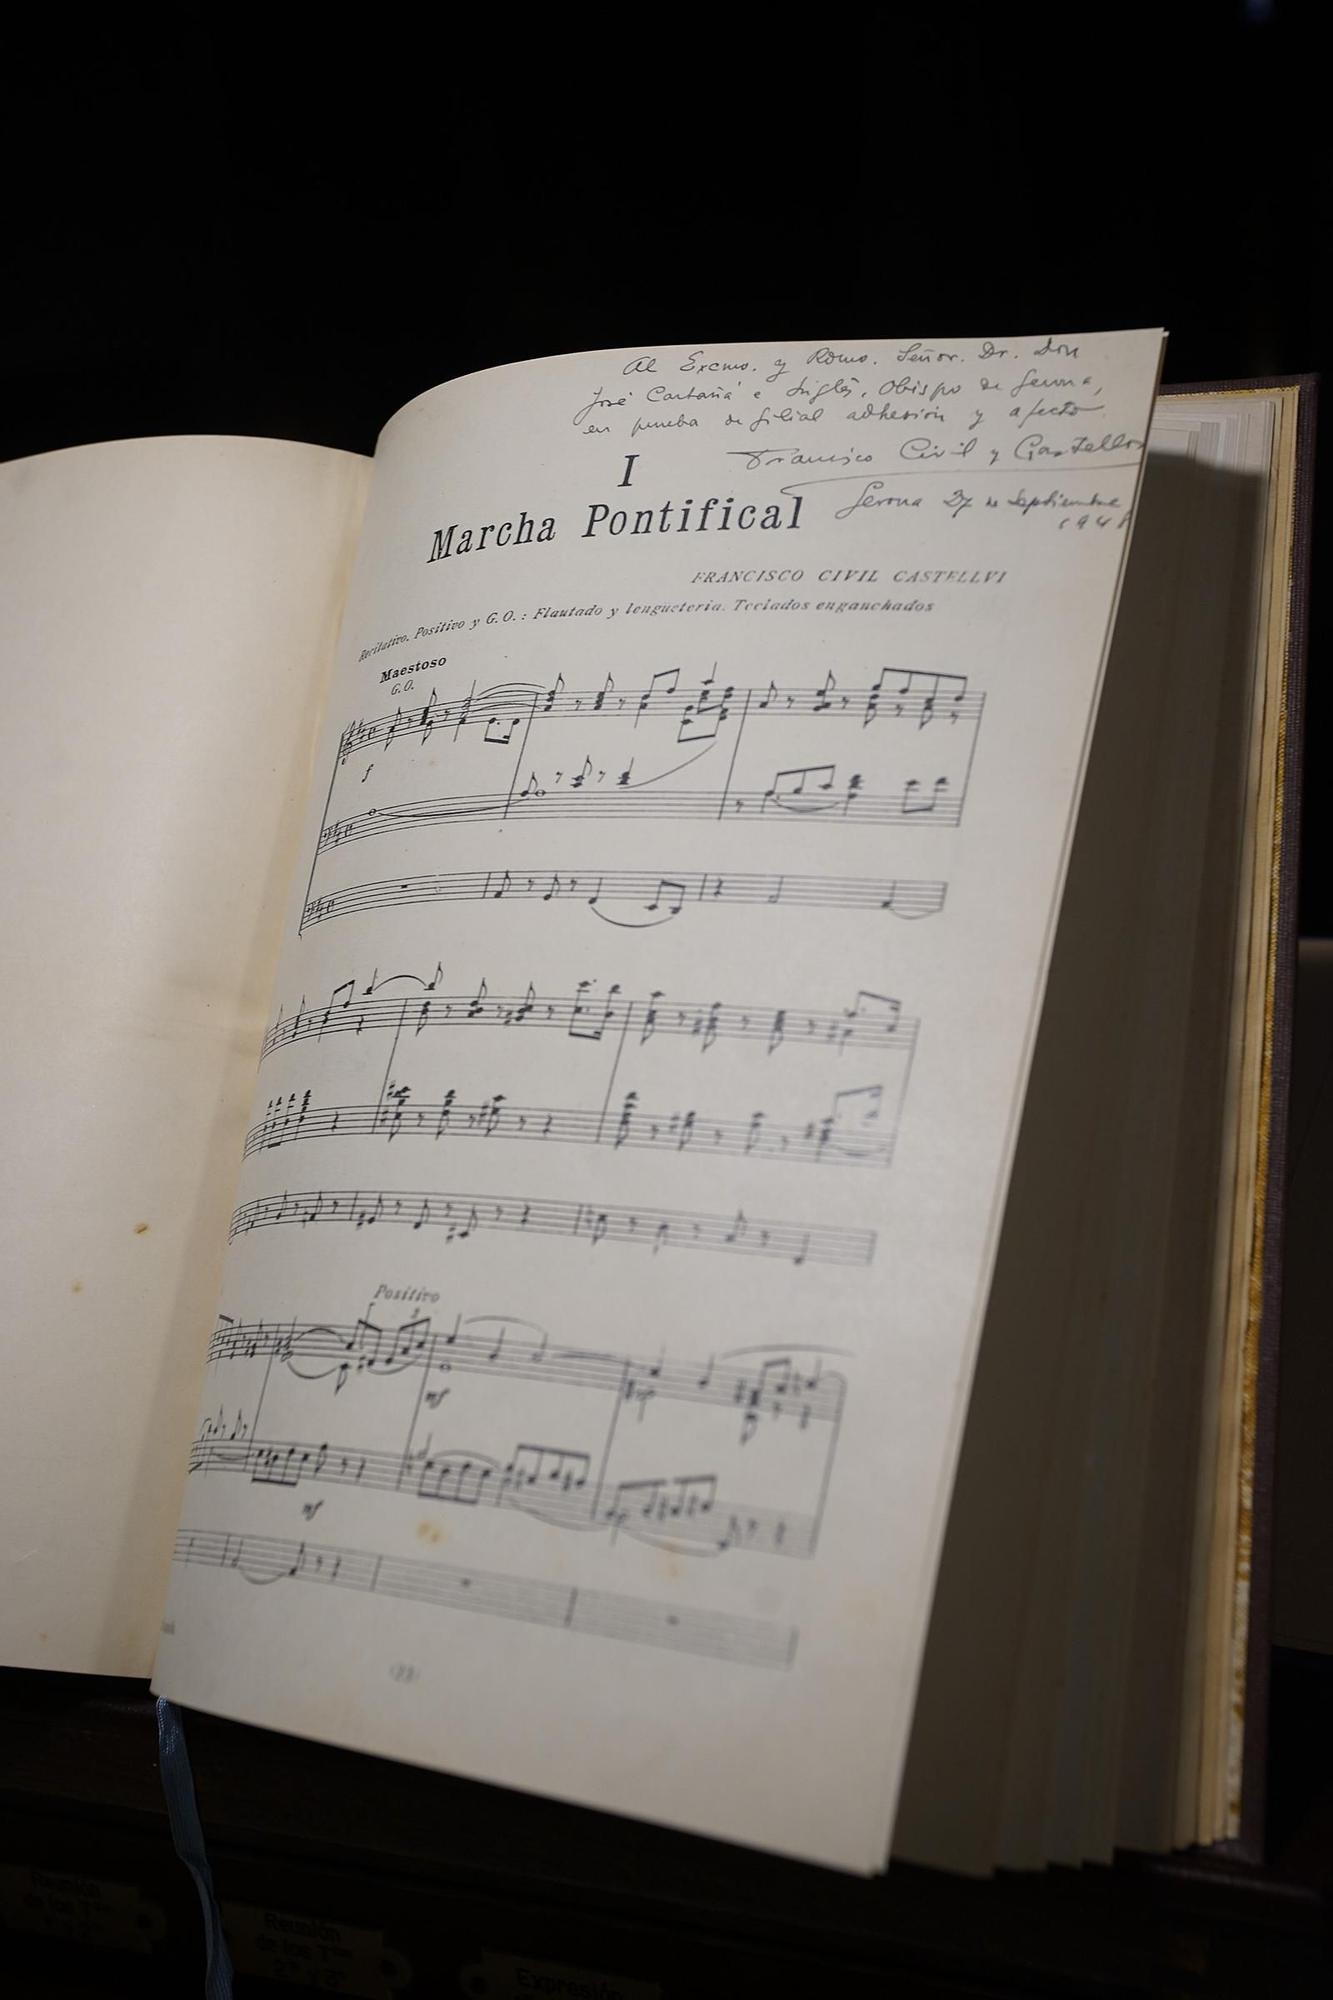 Al Excmo. y Rdmo. Señor. Dr. Don
José Cartañá e Inglés, Obispo de Gerona,
en prueba de filial adhesión y afecto
Francisco Civil y Castellví
Gerona 27 de Septiembre
194
I
Marcha Pontifical
FRANCISCO CIVIL CASTELLVI
Recitativo, Positivo y G.O.: Flautado y lengueteria. Teclados enganchados
Maestoso
G.O.
f
Positivo
3
mf
mf
Reunión
de los T
Reunión
de los T
2º y 3º
Expresión